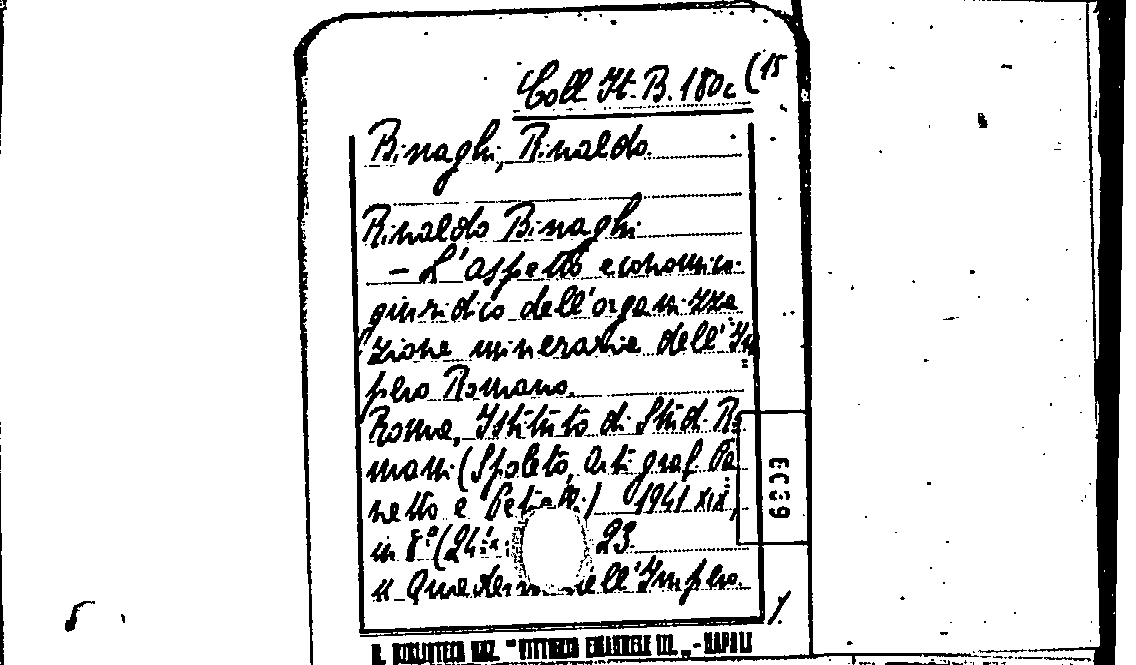 Coll It. B. 180c (15
Binaghi, Rinaldo.
Rinaldo Binaghi
- L'aspetto economico-
giuridico dell'organizza
zione mineraria dell'Im
pero Romano.
Roma, Istituto di Studi Ro
mani (Spoleto, Arti graf. Pa
netto e Petrelli) 1941 XIX,
in 8° (24 23.
Quaderni dell'Impero.
R. BIBLIOTECA NAZ. "VITTORIO EMANUELE III„ - NAPOLI